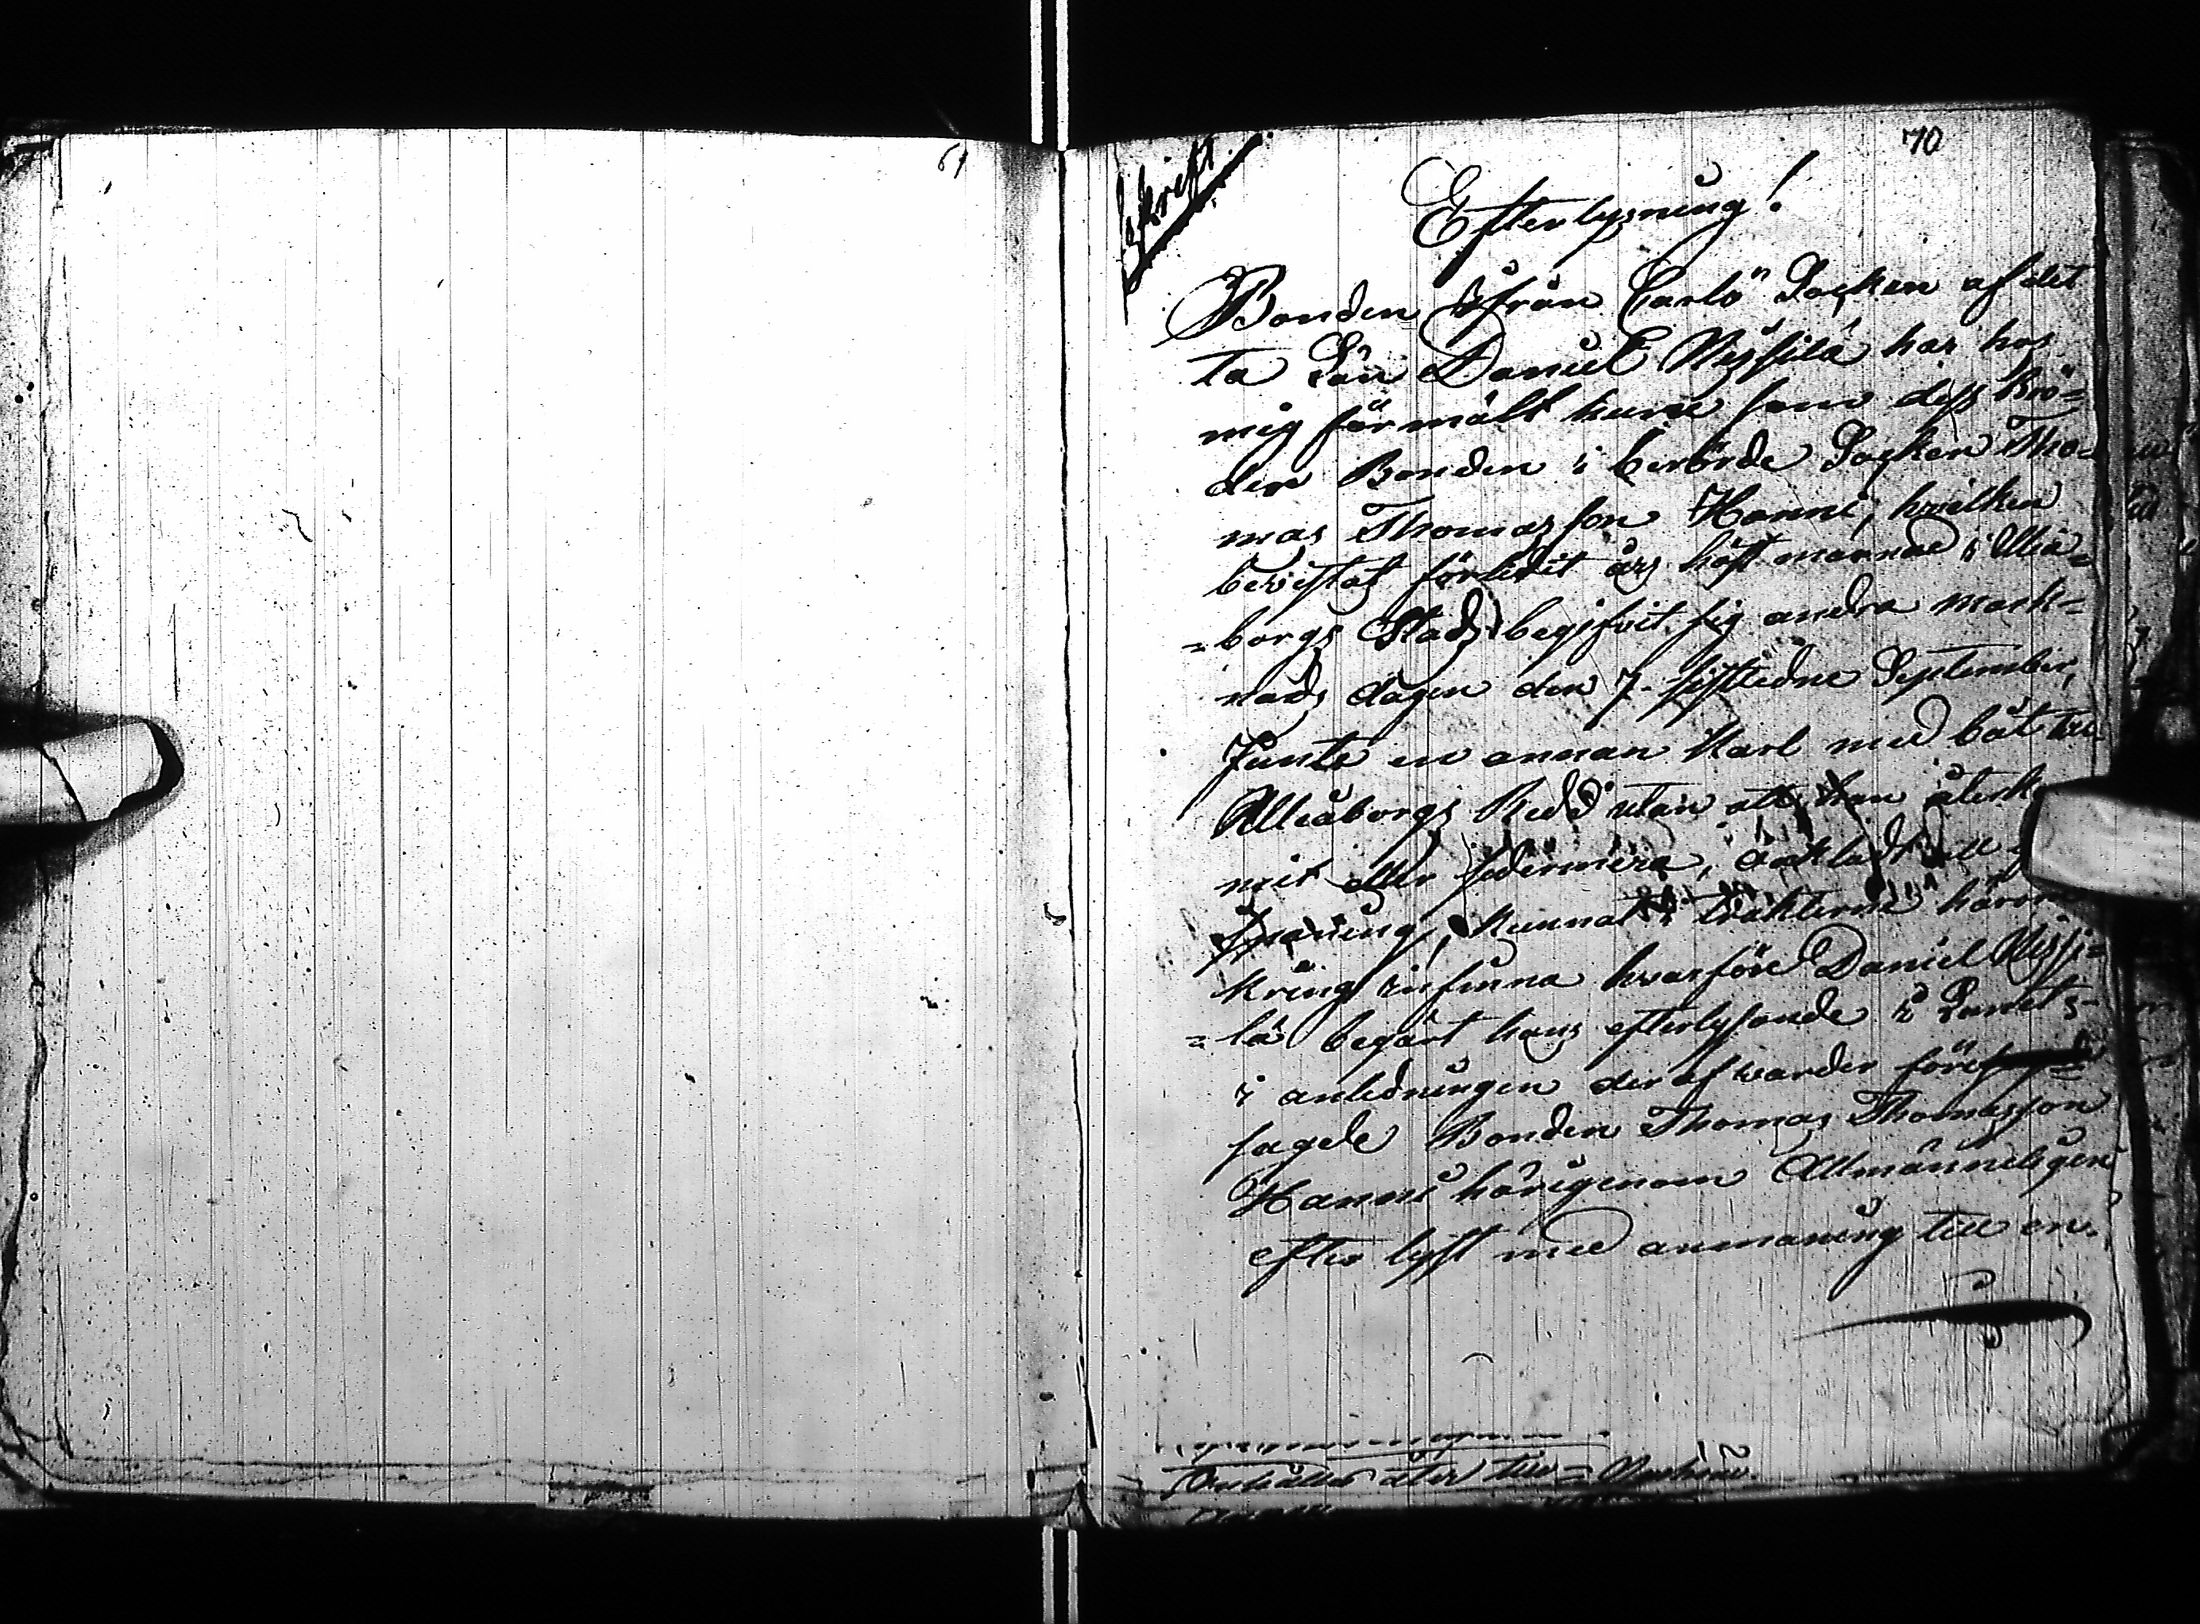 69
70
Afskrift.
Efterlysning!
Bonden ifrån Carlö Socken af det
ta Län Daniel Nissilä har hos
mig förmält huru som dess Bro=
der Bonden i berörde Socken Tho=
mas Thomasson Hanni, hvilken
bevistat förledit års höst marnad i Uleå=
=borgs Stad, begifvit sig andra mark=
nads dagen den 7. sistledne September,
Jemte en annan Karl med båt till
Uleåborgs Redd utan att han återkom
mit eller sedermera, oaktadt all
spaning, kunnat i trakterne härom
kring rinfinna hvarföre Daniel Nissi=
=lä begärt hans efterlysande i Länet;
i anledningen deraf varder före
sagde Bonden Thomas Thomasson
Hanni härigenom Allmänneligen
efter lyst med anmaning till en.